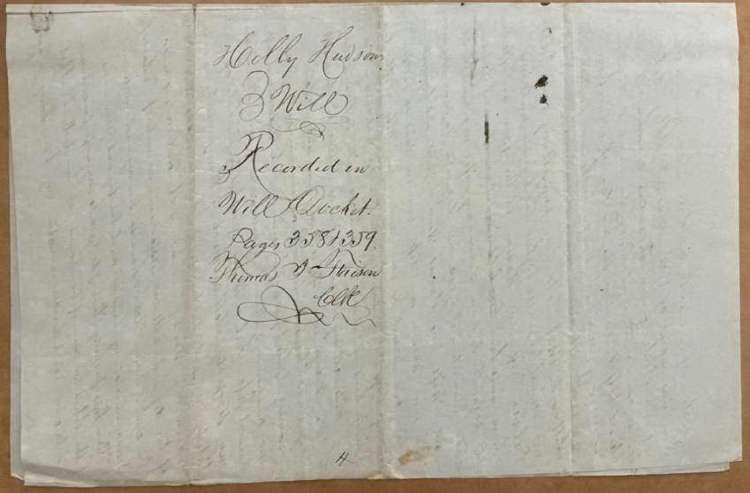 Holly Hudson
Will
Recorded in
Will Docket.
Pages 358 & 359
Thomas
Clk
4